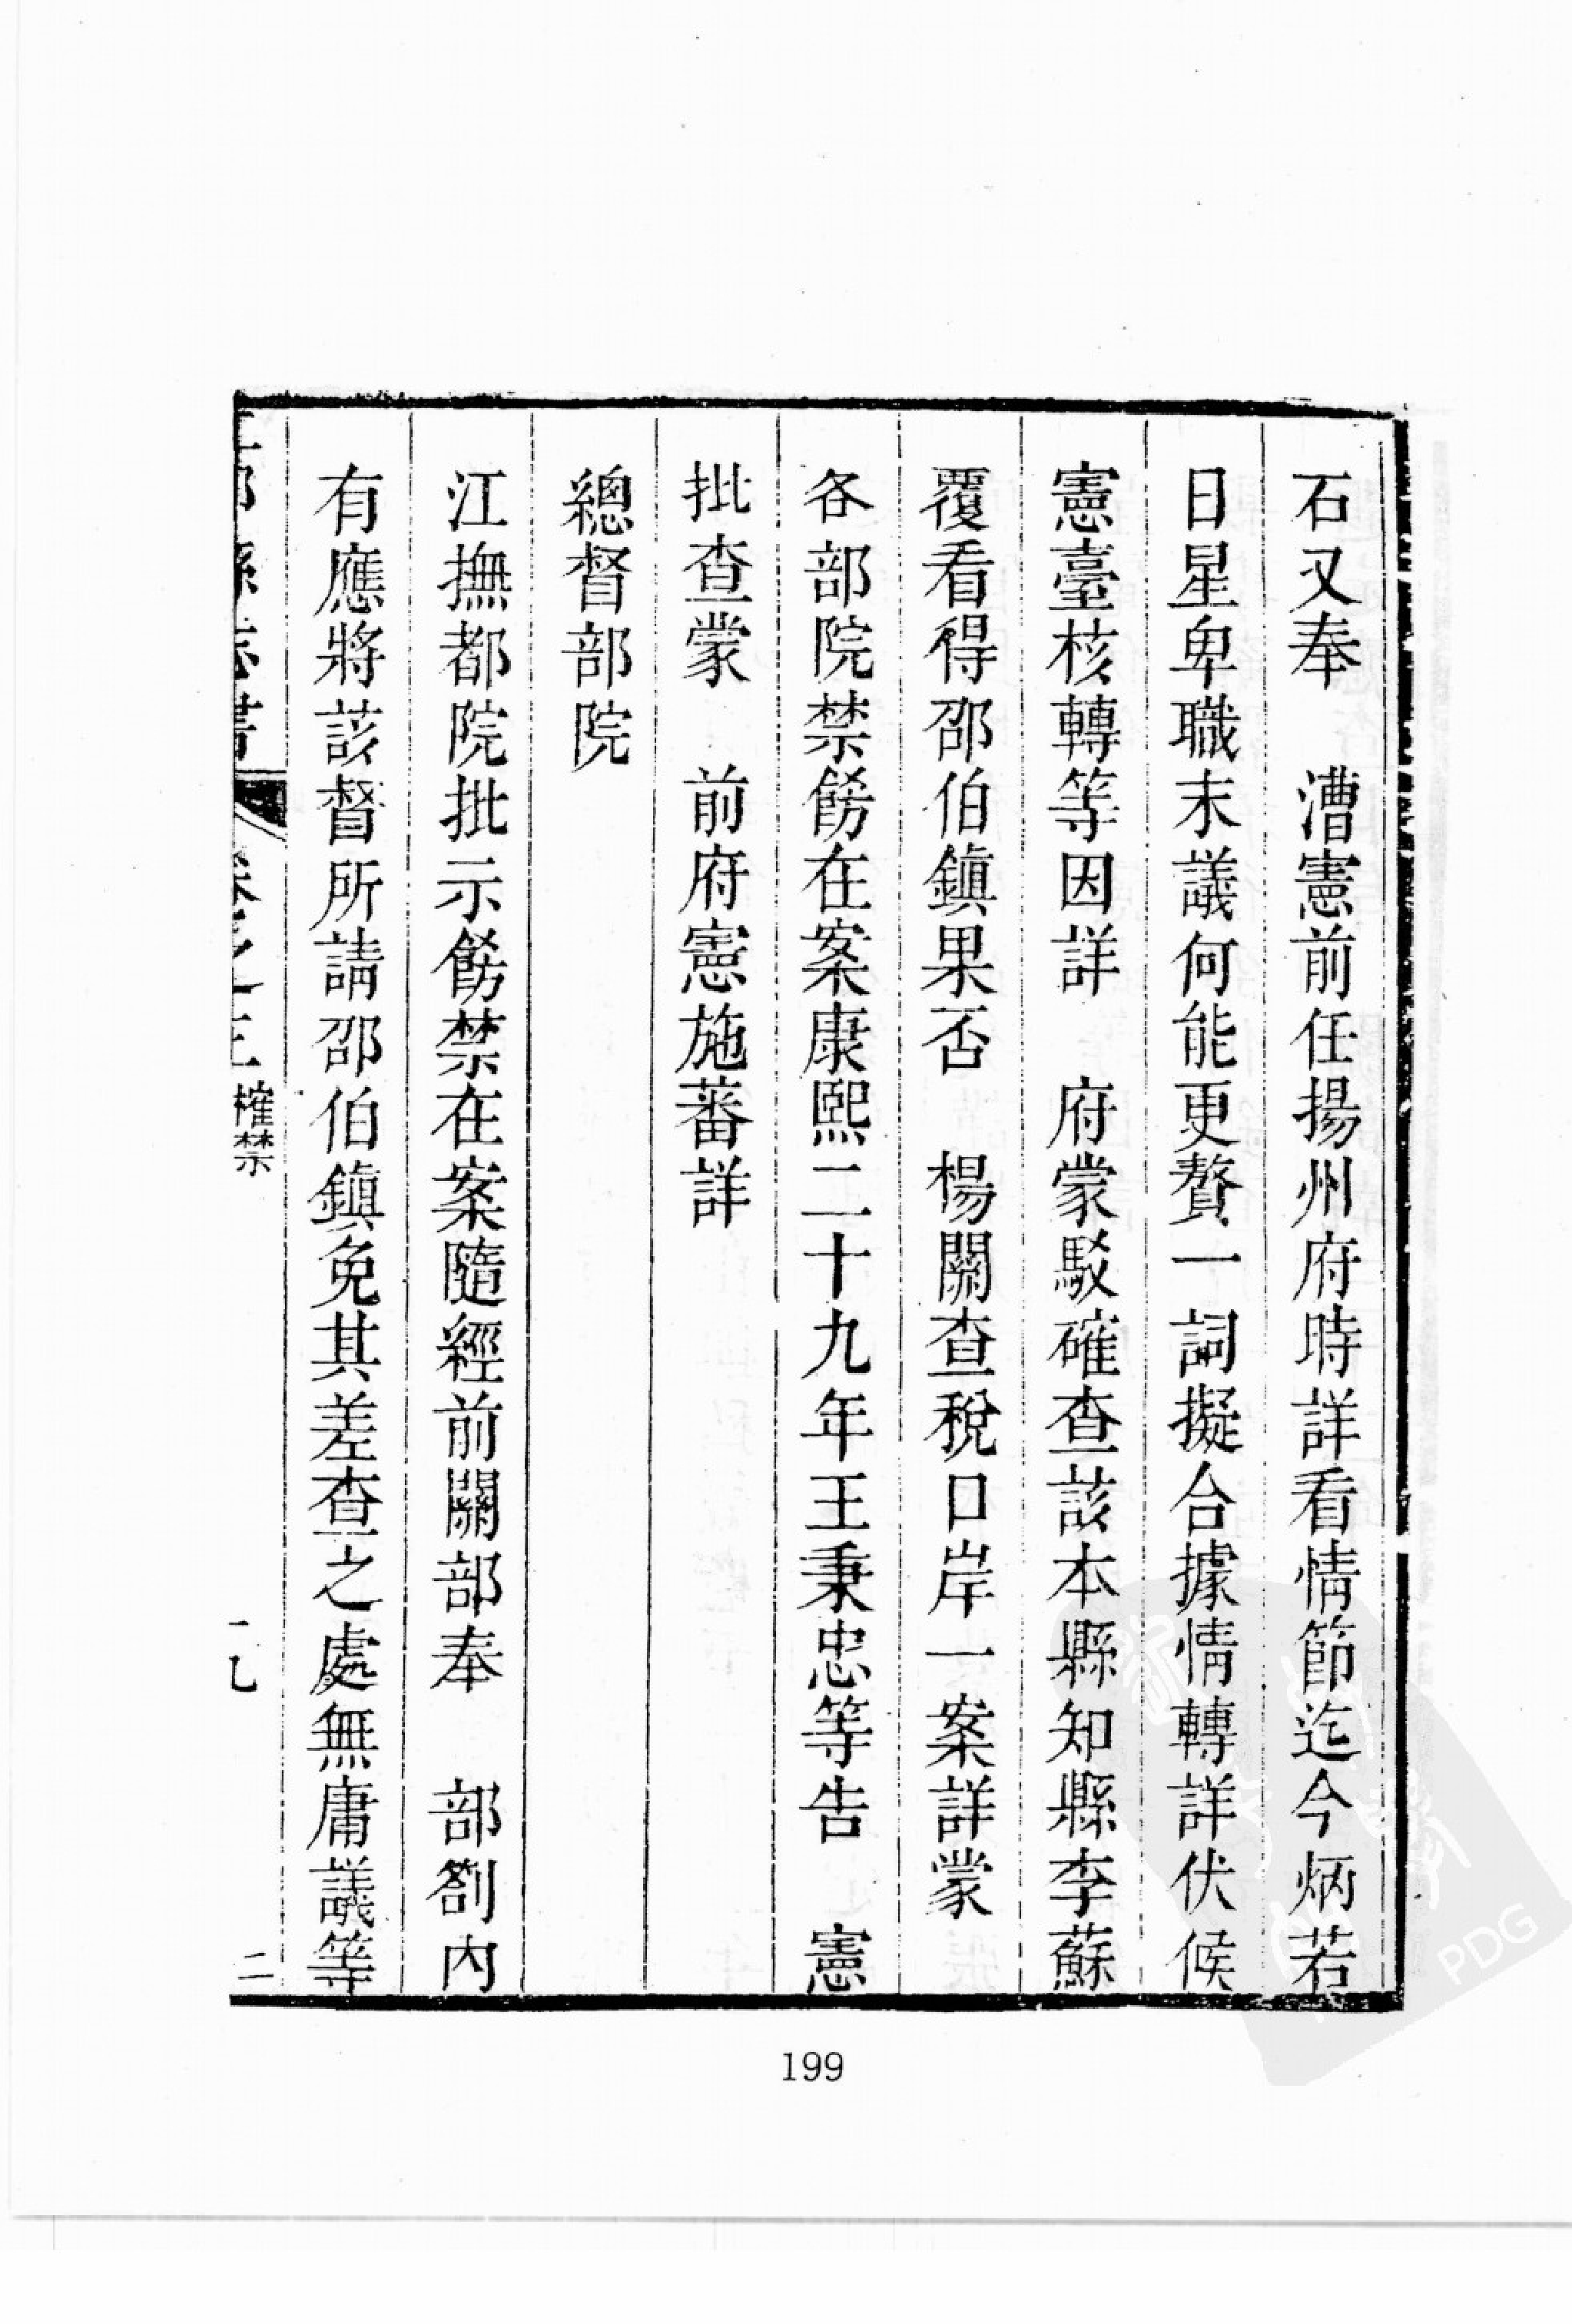 石又奉　漕憲前任揚州府時詳看情節迄今炳若
日星卑職末議何能更贅一詞擬合據情轉詳伏候
憲臺核轉等因詳　府蒙駁確查該本縣知縣李蘇
覆看得邵伯鎮果否　楊關查稅口岸一案詳蒙
各部院禁餝在案康熙二十九年王秉忠等告　憲
批查蒙　前府憲施蕃詳
總督部院
江撫都院批示餝禁在案隨經前關部奉　部劄內
有應將該督所請邵伯鎮免其差查之處無庸議等
縣志書　卷之三　榷禁　二
199
PDG